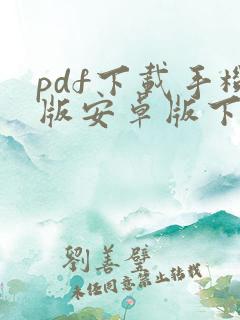 pdf下載手機
版安卓版下
劉善璧
未经同意禁止转载